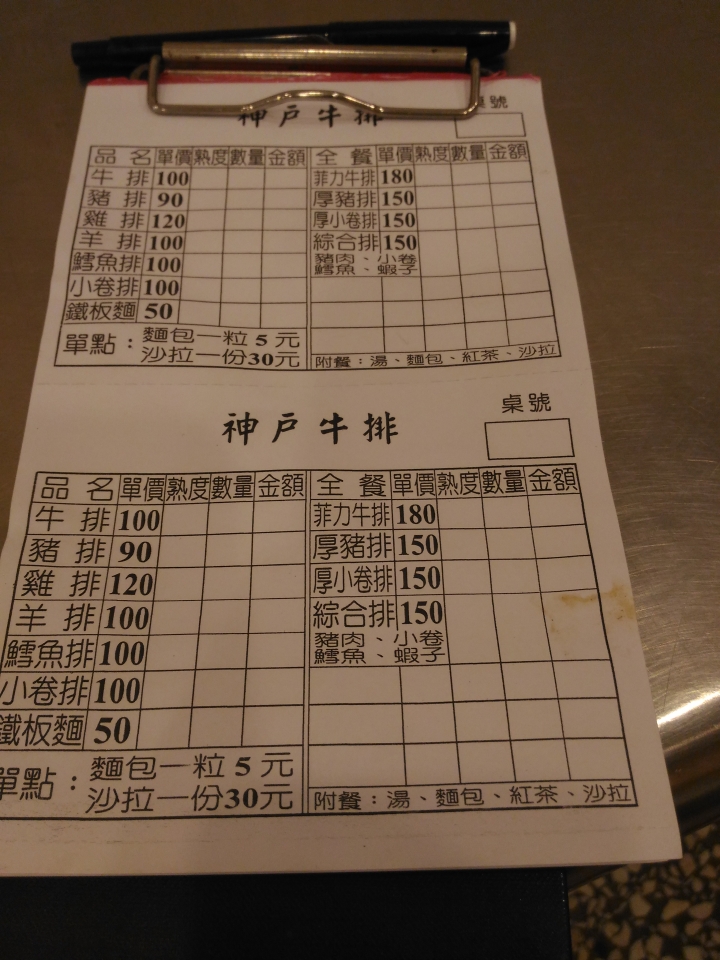 神戶牛排
桌號
品名 單價 熟度 數量 金額 全餐 單價 熟度 數量 金額
牛排 100 菲力牛排 180
豬排 90 厚豬排 150
雞排 120 厚小卷排 150
羊排 100 綜合排 150
鱈魚排 100 豬肉、小卷
鱈魚、蝦子
小卷排 100
鐵板麵 50
單點：麵包一粒5元
沙拉一份30元
附餐：湯、麵包、紅茶、沙拉
神戶牛排
桌號
品名 單價 熟度 數量 金額 全餐 單價 熟度 數量 金額
牛排 100 菲力牛排 180
豬排 90 厚豬排 150
雞排 120 厚小卷排 150
羊排 100 綜合排 150
豬肉、小卷
鱈魚排 100 鱈魚、蝦子
小卷排 100
鐵板麵 50
單點：麵包一粒5元
沙拉一份30元
附餐：湯、麵包、紅茶、沙拉